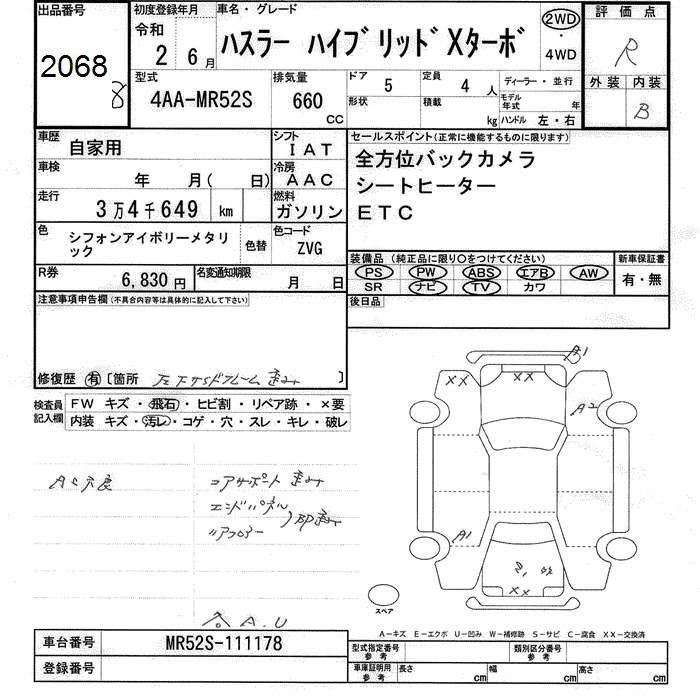 出品番号
2068
8
初度登録年月
令和
2 6月
車名・グレード
ハスラー ハイブリッドXターボ
2WD
・
4WD
評価点
R
外装 内装
B
型式
4AA-MR52S
排気量
660
CC
ドア
5
定員
4 人
形状
積載
kg
ディーラー・並行
モデル年式 年
ハンドル 左・右
車歴
自家用
シフト
IAT
車検
年 月( 日)
冷房
AAC
走行
3万4千649 km
燃料
ガソリン
色
シフォンアイボリーメタリック
色替
色コード
ZVG
R券
6,830円
名変通知期限
月 日
セールスポイント(正常に機能するものに限ります)
全方位バックカメラ
シートヒーター
ETC
装備品(純正品に限り○をつけてください)
PS PW ABS エアB AW
SR ナビ TV カワ
新車保証書
有・無
後日品
注意事項申告欄(不具合内容等は具体的に記入して下さい)
修復歴 有 [箇所 ]
検査員記入欄
FW キズ・飛石・ヒビ割・リペア跡・×要
内装 キズ・汚レ・コゲ・穴・スレ・キレ・破レ
コアサポート 歪み
エンドパネル
リアフロアー
A1
XX
XX
A2
A1
XX
スペア
A.U
A−キズ E−エクボ U−凹み W−補修跡 S−サビ C−腐食 XX−交換済
車台番号
MR52S-111178
登録番号
型式指定番号 参考
類別区分番号 参考
車庫証明用 参考
長さ cm
幅 cm
高さ cm